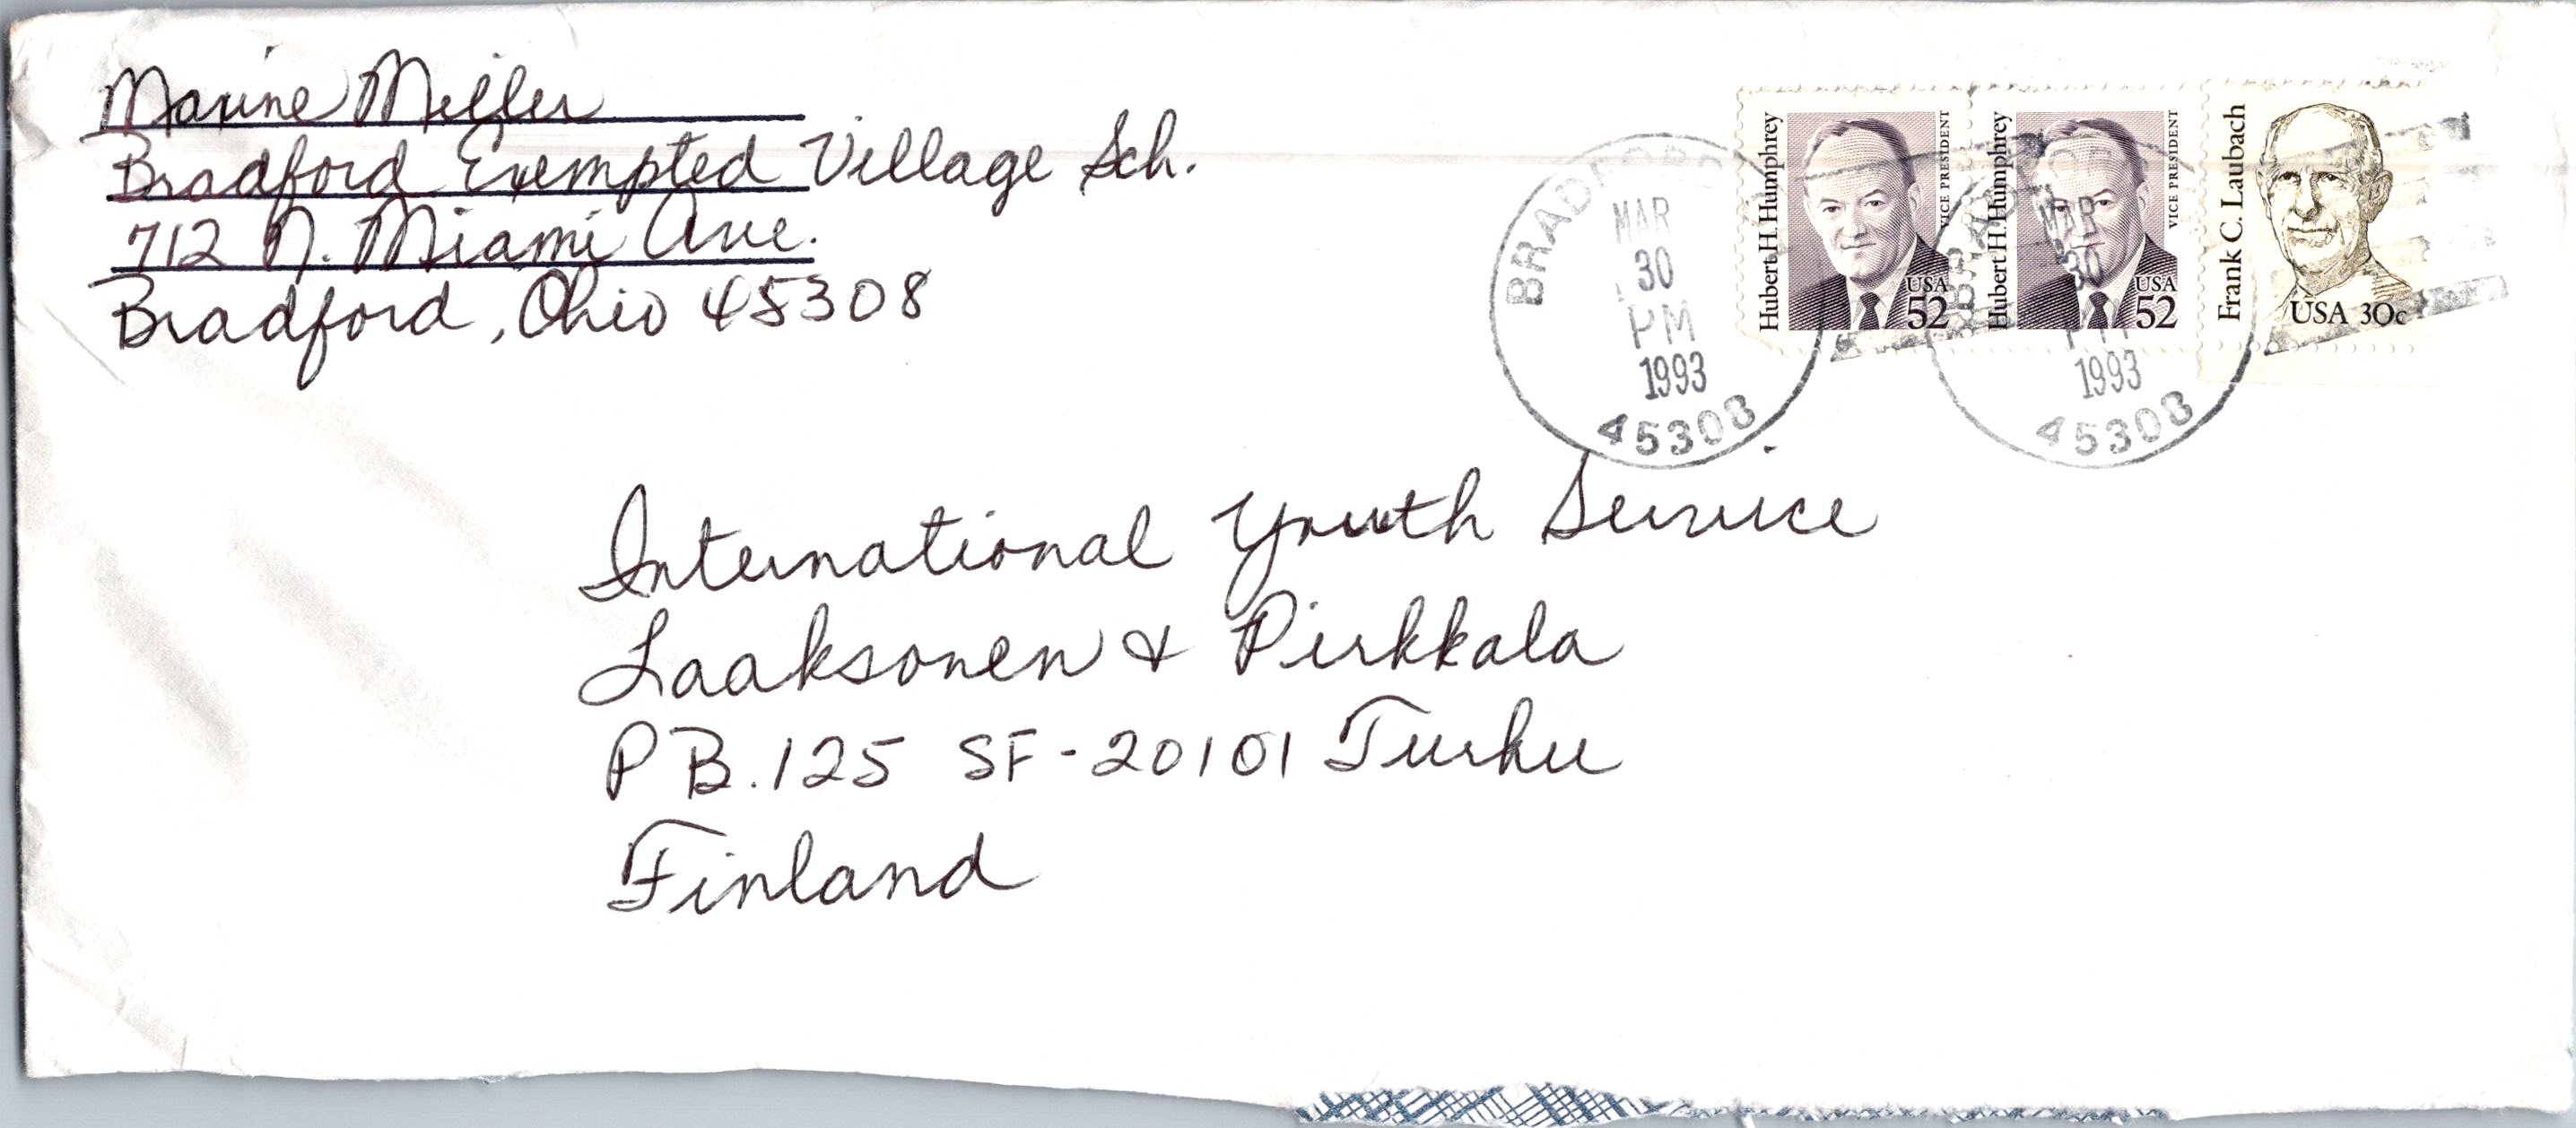 Maxine Miller
Bradford Exempted Village Sch.
712 N. Miami Ave.
Bradford, Ohio 45308
Hubert H. Humphrey
VICE PRESIDENT
USA
52
Hubert H. Humphrey
VICE PRESIDENT
USA
52
Frank C. Laubach
USA 30c
BRADFORD
MAR
30
PM
1993
45308
BRADFORD
MAR
30
PM
1993
45308
International Youth Service
Laaksonen & Pirkkala
PB.125 SF-20101 Turku
Finland